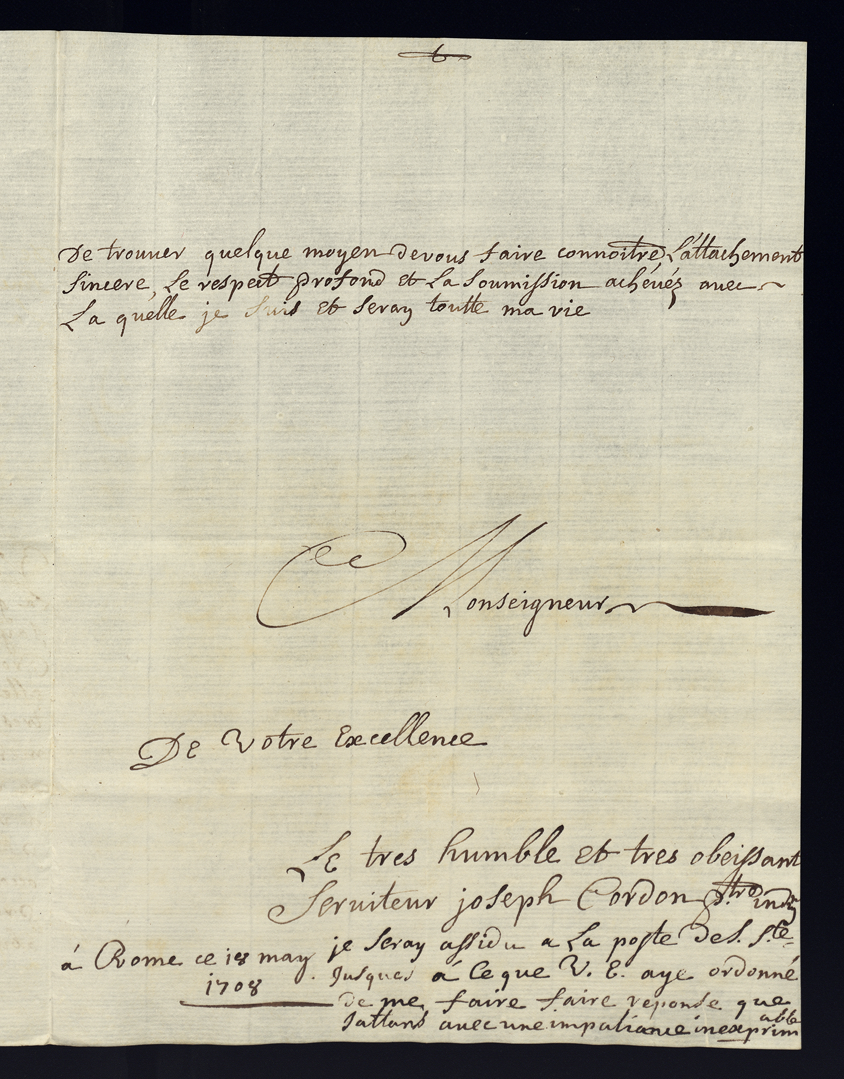 De trouuer quelque moyen de vous faire connoitre L'attachement
sincere, Le respect profond et La soumission achéuéz auec
La quélle je suis et seray toutte ma vie
Monseigneur
De Votre Excellence
Le tres humble et tres obeissant
Seruiteur joseph Cordon
á Rome ce 18 may
1708
je seray assidu a La poste de S. Ste
jusques á Ce que V. E. aye ordonné
de me faire faire reponse que
jattans auec une impatiance inexprim
able